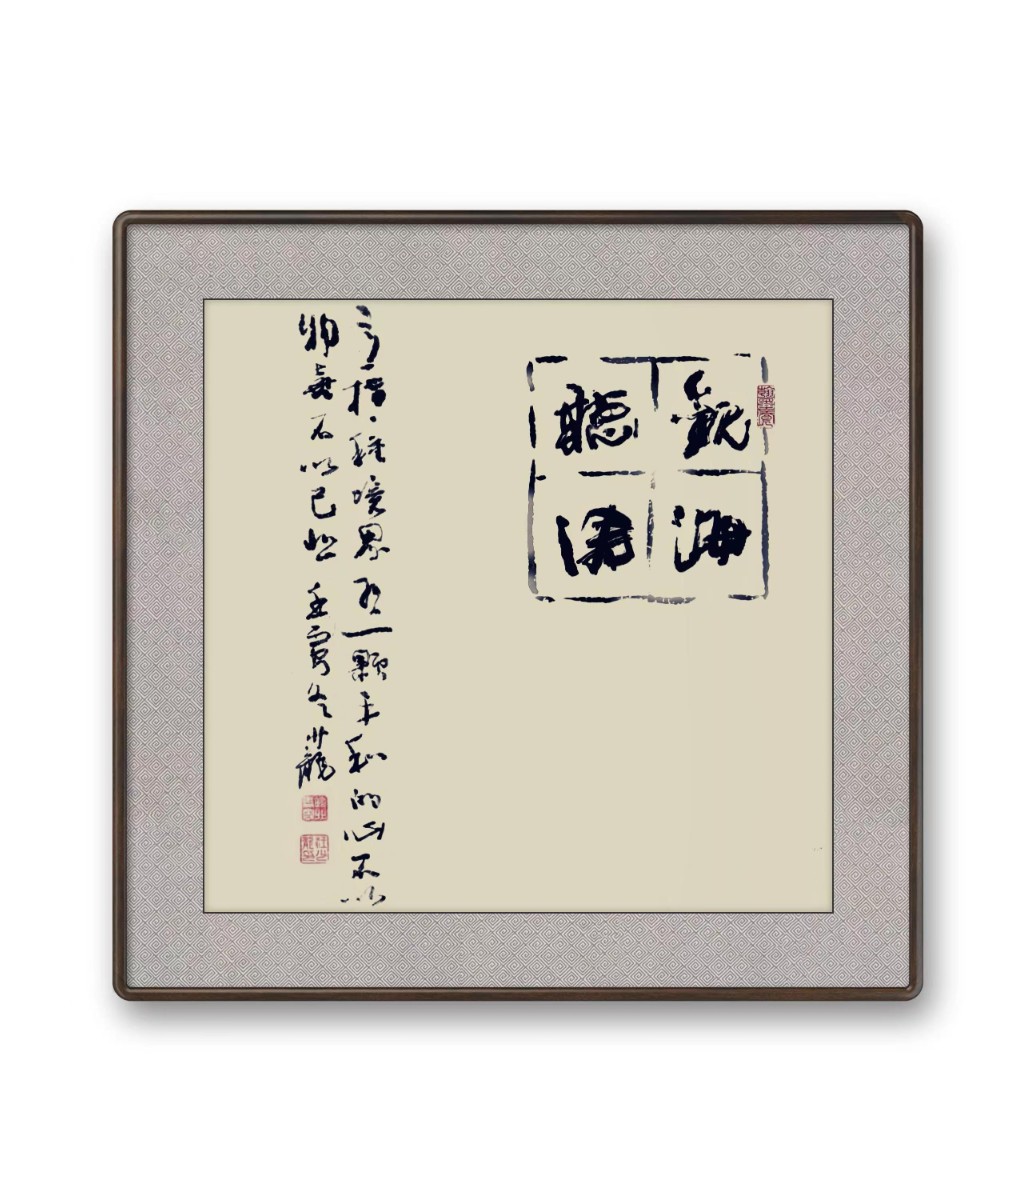 觀海
聽濤
種境界一顆平和的心不以
物喜不以己悲 壬寅冬 少龍